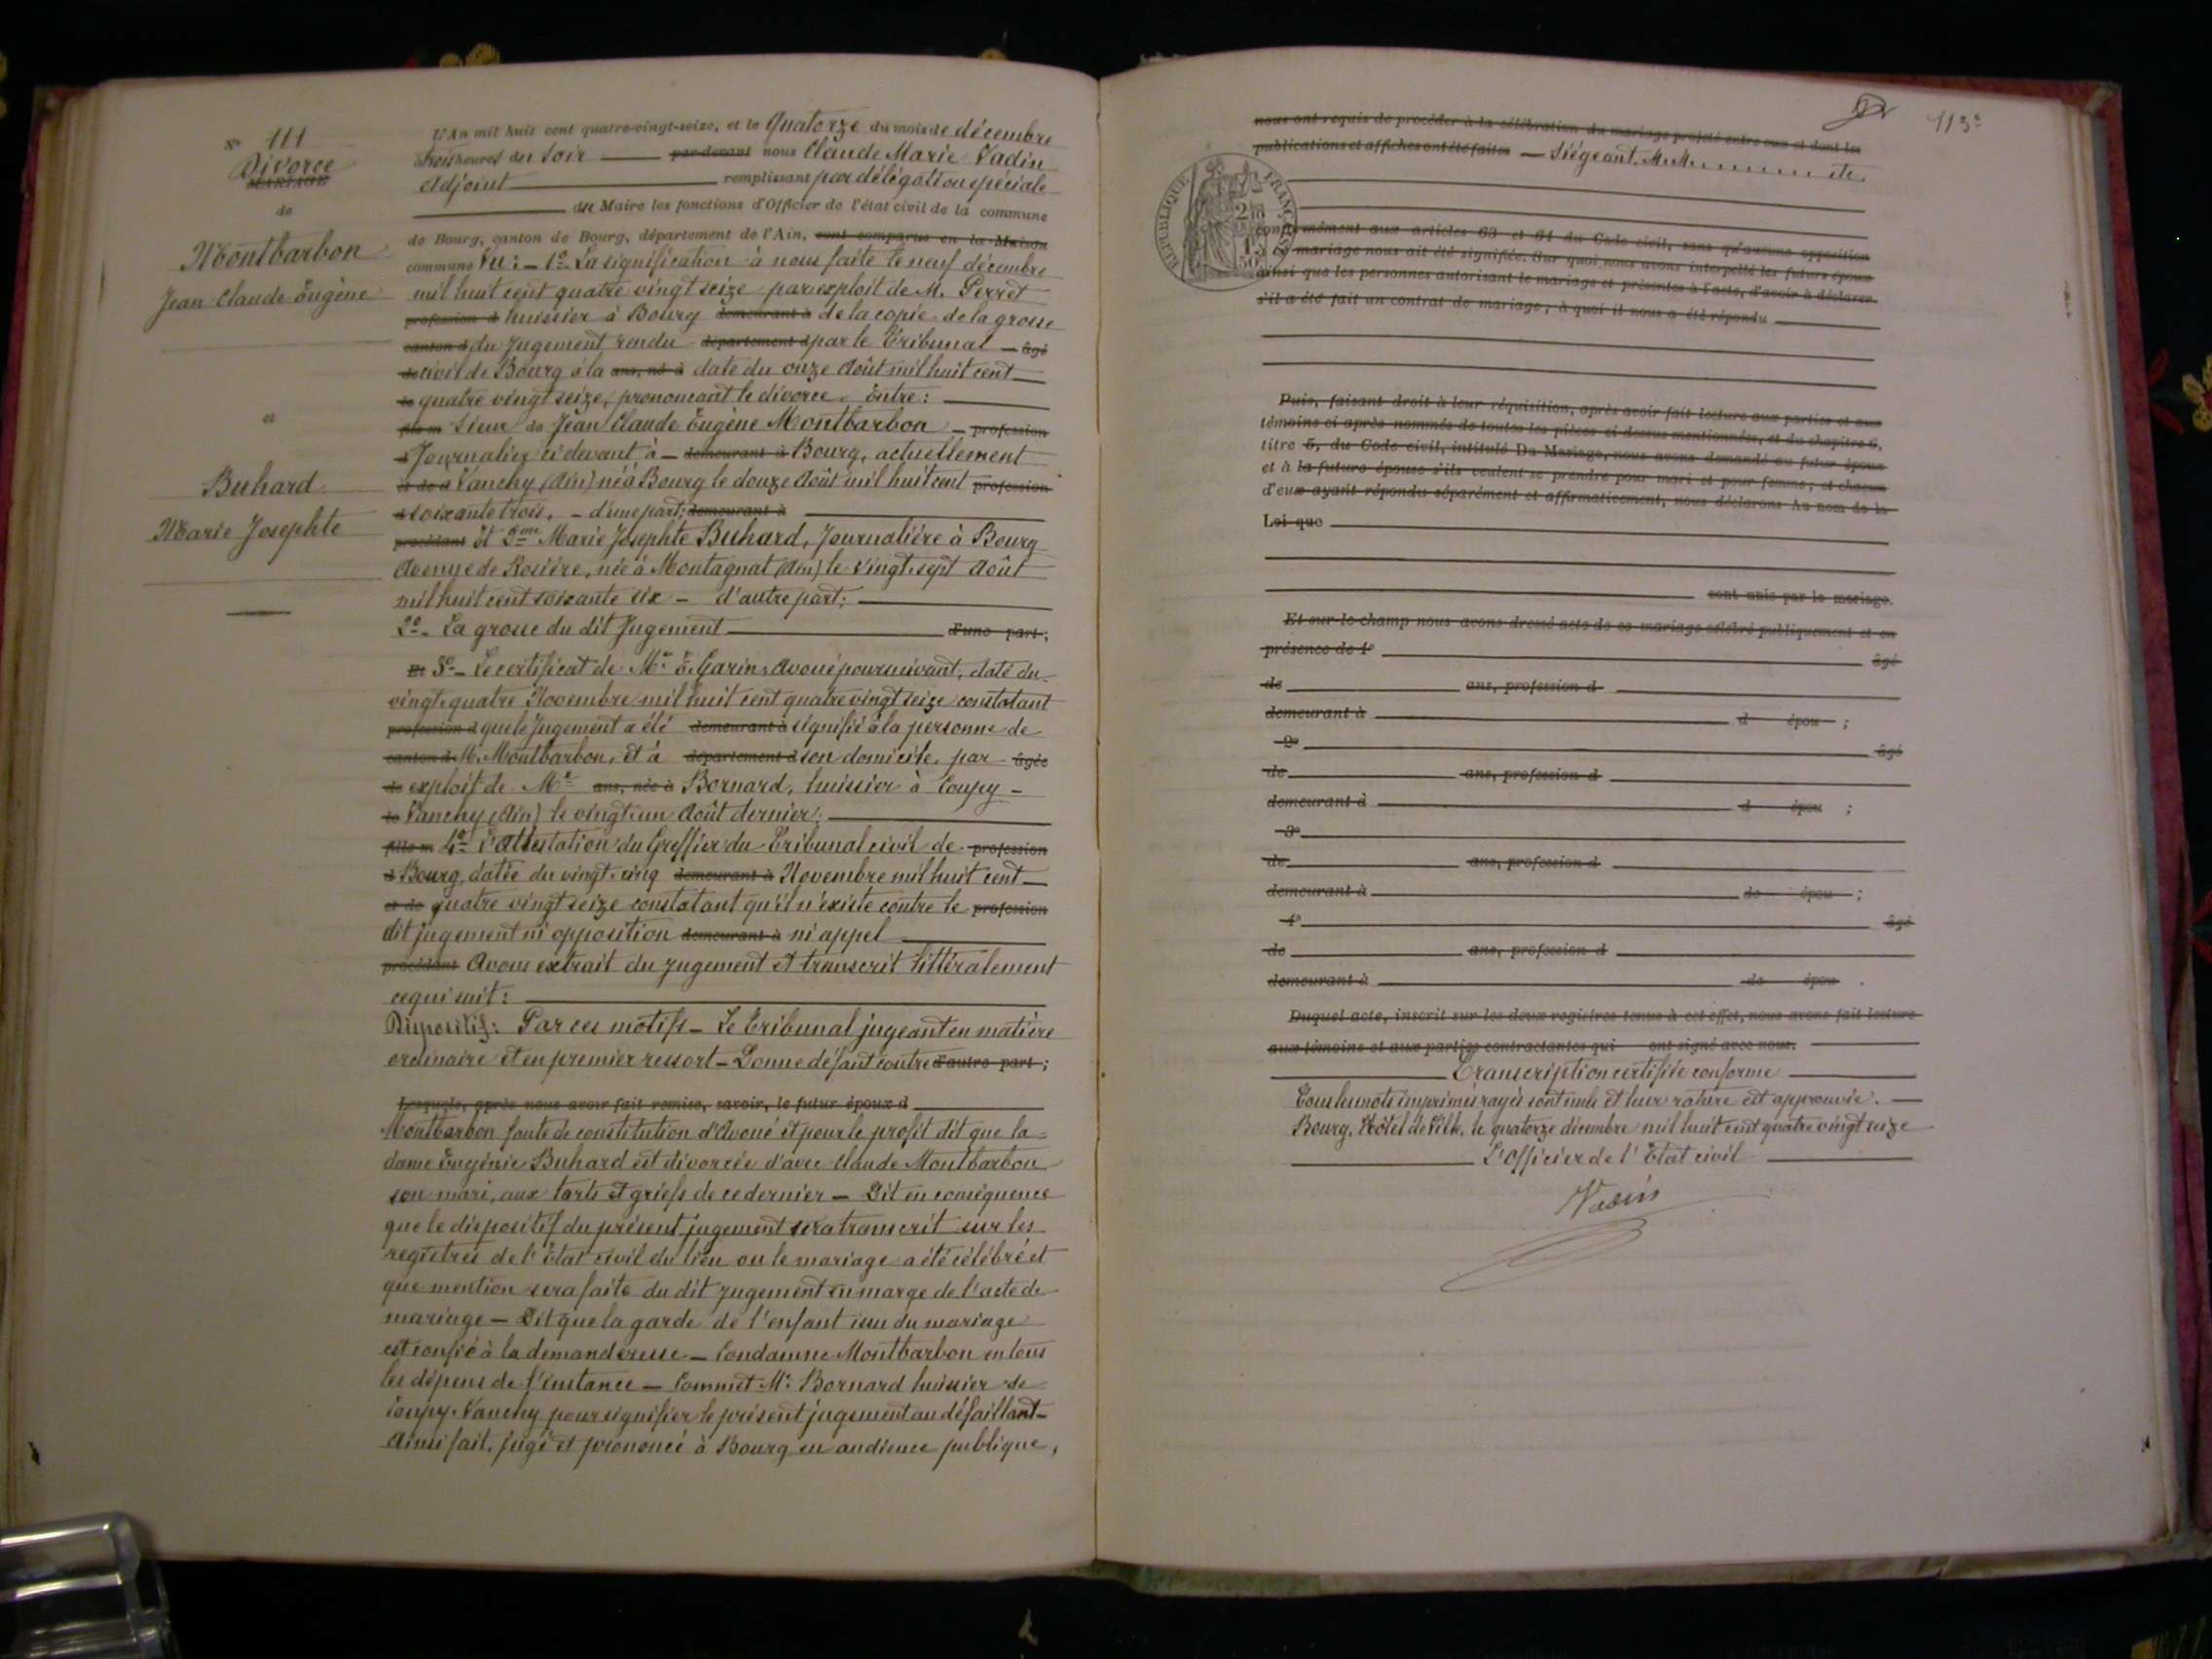 N° 111
Divorce
MARIAGE
de
Montbarbon
Jean Claude Eugène
et
Buhard
Marie Josephte
L'An mil huit cent quatre-vingt-seize, et le Quatorze du mois de décembre
à trois heures du soir par-devant nous Claude Marie Vadin
Adjoint remplissant par délégation spéciale
du Maire les fonctions d'Officier de l'état civil de la commune
de Bourg, canton de Bourg, département de l'Ain, sont comparus en la Maison
commune Vu : – 1° La signification à nous faite le neuf décembre
mil huit cent quatre vingt seize par exploit de M. Perret
profession d huissier à Bourg demeurant à de la copie de la grosse
canton d du Jugement rendu département d par le Tribunal – âgé
de civil de Bourg à la ans, né à date du onze Août mil huit cent
le quatre vingt seize, prononçant le divorce. Entre :
fils m Sieur de Jean Claude Eugène Montbarbon – profession
d Journalier ci devant à – demeurant à Bourg, actuellement
et de d Vanchy (Ain) né à Bourg le douze Août mil huit cent profession
d soixante trois, – d'une part; demeurant à
procédant Et Dme Marie Josephte Buhard, Journalière à Bourg
Avenue de Rosière, née à Montagnat (Ain) le vingt-sept Août
mil huit cent soixante six – d'autre part;
2° – La grosse du dit Jugement d'une part ;
Et 3° – Le certificat de Me E. Garin, Avoué poursuivant, daté du
vingt-quatre Novembre mil huit cent quatre vingt seize constatant
profession d que le Jugement a été demeurant à signifié à la personne de
canton d M. Montbarbon, et à département d son domicile, par âgée
de exploit de Me ans, née à Bornard, huissier à Coupy –
le Vanchy (Ain) le vingt-un Août dernier;
fille m 4° L'Attestation du Greffier du Tribunal civil de profession
d Bourg, datée du vingt-cinq demeurant à Novembre mil huit cent
et de quatre vingt seize constatant qu'il n'existe contre le profession
dit jugement ni opposition demeurant à ni appel
procédant Avons extrait du jugement et transcrit littéralement
ce qui suit :
Dispositif : Par ces motifs – Le Tribunal jugeant en matière
ordinaire et en premier ressort – Donne défaut contre d'autre part ;
Lesquels, après nous avoir fait remise, savoir, le futur époux d
Montbarbon faute de constitution d'Avoué et pour le profit dit que la
dame Eugénie Buhard est divorcée d'avec Claude Montbarbon
son mari, aux torts et griefs de ce dernier – Dit en conséquence
que le dispositif du présent jugement sera transcrit sur les
registres de l'Etat civil du lieu ou le mariage a été célébré et
que mention sera faite du dit jugement en marge de l'acte de
mariage – Dit que la garde de l'enfant issu du mariage
est confié à la demanderesse – Condamne Montbarbon en tous
les dépens de l'instance – Commet Me Bornard huissier de
Coupy-Vanchy pour signifier le présent jugement au défaillant –
Ainsi fait, jugé et prononcé à Bourg en audience publique,
113e
nous ont requis de procéder à la célébration du mariage projeté entre eux et dont les
publications et affiches ont été faites – Siégeant M.M. ......... etc.
RÉPUBLIQUE FRANÇAISE
conformément aux articles 63 et 64 du Code civil, sans qu'aucune opposition
mariage nous ait été signifiée. Sur quoi, nous avons interpellé les futurs époux
ainsi que les personnes autorisant le mariage et présentes à l'acte, d'avoir à déclarer
s'il a été fait un contrat de mariage ; à quoi il nous a été répondu
Puis, faisant droit à leur réquisition, après avoir fait lecture aux parties et aux
témoins ci-après nommés de toutes les pièces ci-dessus mentionnées, et du chapitre 6,
titre 5, du Code civil, intitulé Du Mariage, nous avons demandé au futur époux
et à la future épouse s'ils veulent se prendre pour mari et pour femme ; et chacun
d'eux ayant répondu séparément et affirmativement, nous déclarons Au nom de la
Loi que
sont unis par le mariage.
Et sur-le-champ nous avons dressé acte de ce mariage célébré publiquement et en
présence de 1° âgé
de ans, profession d
demeurant à d épou ;
2° âgé
de ans, profession d
demeurant à d épou ;
3°
de ans, profession d
demeurant à de épou ;
4° âgé
de ans, profession d
demeurant à de épou .
Duquel acte, inscrit sur les deux registres tenus à cet effet, nous avons fait lecture
aux témoins et aux parties contractantes qui ont signé avec nous.
Transcription certifiée conforme
Tous les mots imprimés rayés sont nuls et leur rature est approuvée.
Bourg, Hôtel de Ville, le quatorze décembre mil huit cent quatre vingt seize
L'Officier de l'Etat civil
Vadin